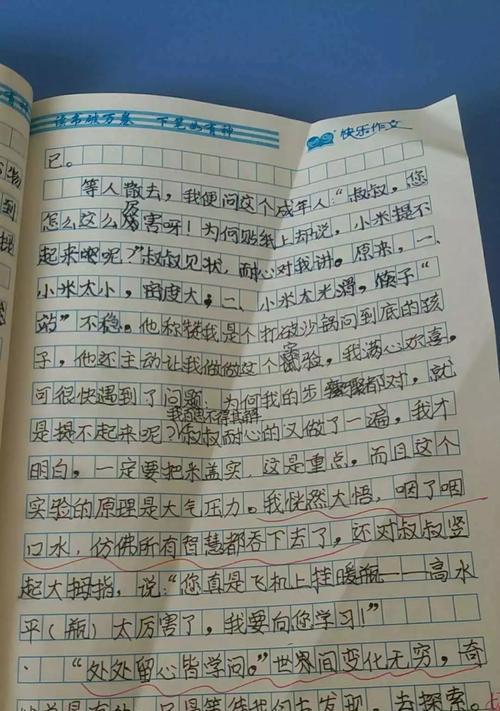 读书破万卷 下笔如有神
快乐作文
已。
等人散去，我便问这个成年人："叔叔，您
怎么这么厉害呀！为何贴纸上却说，小米提不
起来呢？"叔叔见状，耐心对我讲。原来，一、
小米太小，密度大，二、小米太光滑，筷子"
站"不稳。他称赞我是个打破沙锅问到底的孩
子，他还主动让我做做这个实验，我满心欢喜。
可很快遇到了问题：为何我的步骤都对，就
我百思不得其解
是提不起来呢？叔叔耐心的又做了一遍，我才
明白，一定要把米盖实，这是重点。而且这个
实验的原理是大气压力。我恍然大悟，咽了咽
口水，仿佛所有智慧都吞下去了，还对叔叔竖
起大拇指，说："您真是飞机上挂暖瓶——高水
平（瓶）太厉害了，我要向您学习！"
"处处留心皆学问。"世界间变化无穷，奇
总是有的，只是等待我们去发现，去探索。